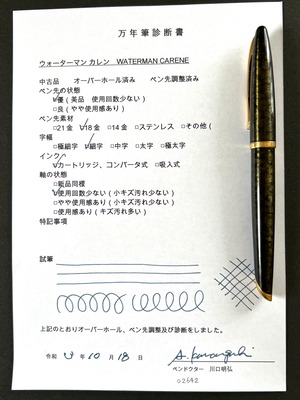 万年筆診断書
ウォーターマン カレン　WATERMAN CARENE
中古品　オーバーホール済み　ペン先調整済み
ペン先の状態
☑優（美品　使用回数少ない）
□良（やや使用感あり）
ペン先素材
□21金 ☑18金 □14金 □ステンレス □その他（
字幅
□極細字 ☑細字 □中字 □太字 □極太字
インク
☑カートリッジ、コンバータ式 □吸入式
軸の状態
□新品同様
☑使用回数少ない（小キズ汚れ少ない）
□やや使用感あり（小キズ汚れ少ない）
□使用感あり（キズ汚れ多い）
特記事項
試筆
上記のとおりオーバーホール、ペン先調整及び診断をしました。
令和　年 10 月 18 日
ペンドクター　川口明弘
02642